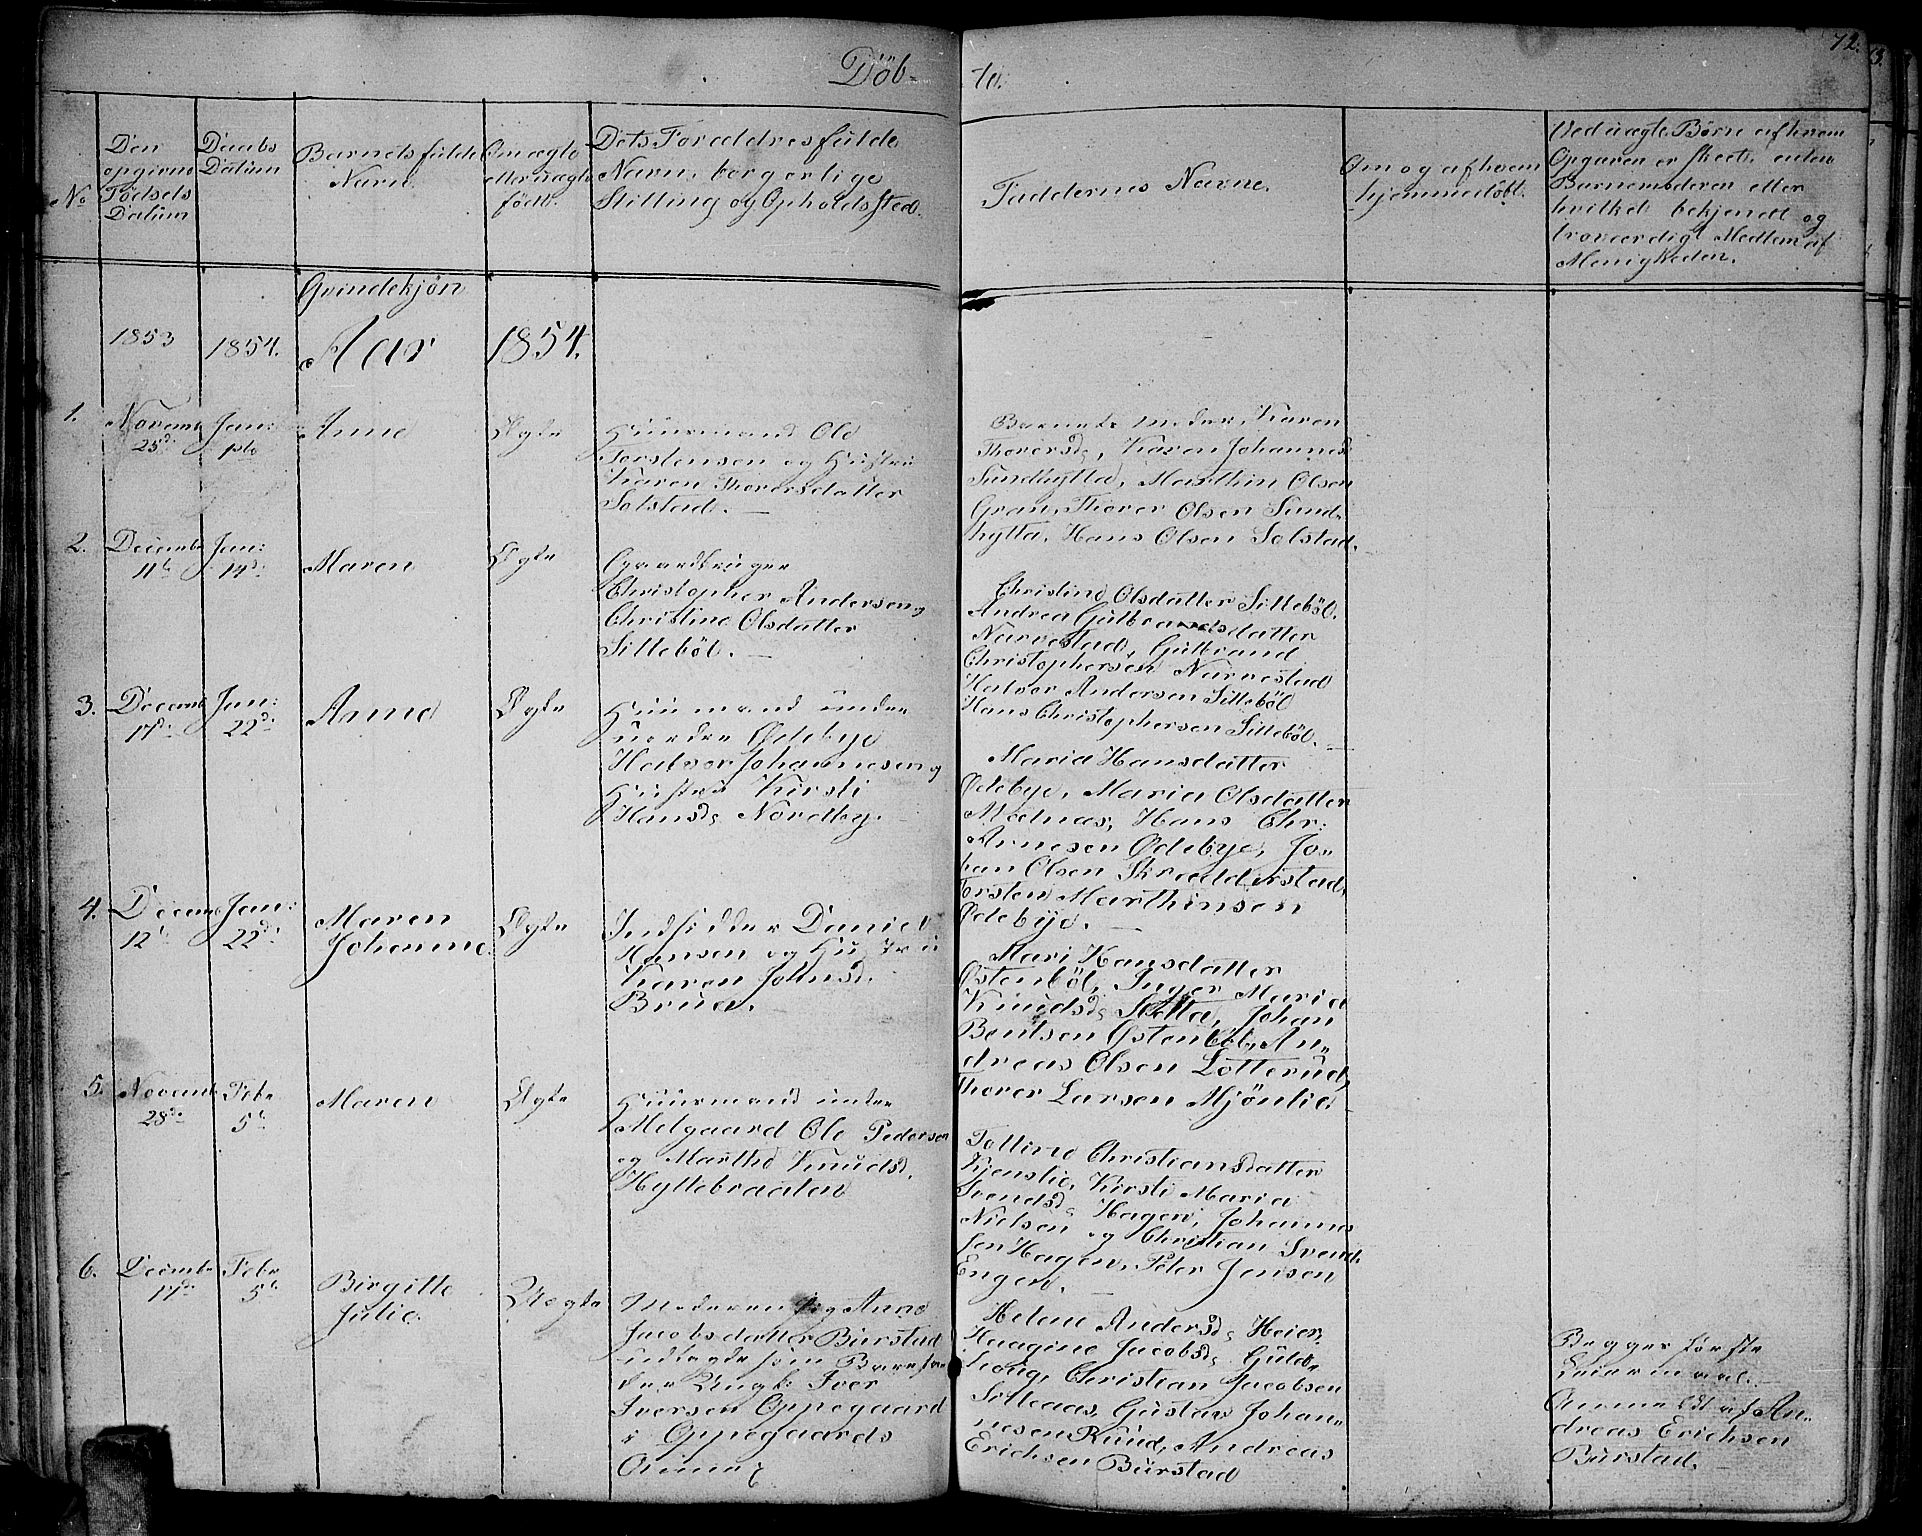 Döb-
te.
72.
No
Den
opgivne
Födsels
Datum
Daabs
Datum
Barnets fulde
Navn.
Om ægte
eller uægte
födt.
Dets Forældres fulde
Navn, borgerlige
Stilling og Opholdssted.
Faddernes Navne.
Om og af hvem
hjemmedöbt.
Ved uægte Börn af hvem
Opgaven er skeet, enten
Barnemoderen eller
hvilket bekjendt og
troværdigt Medlem af
Menigheden.
Qvindekjön
1853
1854.
Aar
1854.
1.
Novemb
25d.
Jan:
1ste
Anne
Ægte
Huusmand Ole
Torstensen og Hustru
Karen Thorersdatter
Solstad.
Barnets Moder, Karen
Thorersd, Karen Johannesd
Sundhytta, Marthin Olsen
Gran, Thorer Olsen Sund-
hytta, Hans Olsen Solstad.
2.
Decembr
11t.
Jan:
14d.
Maren
Ægte
Gaardbruger
Christopher Andersen og
Christine Olsdatter
Sillebøl.
Christine Olsdatter Silleböl.
Andrea Gulbrandsdatter
Narvestad, Gulbrand
Christophersen Narvestad
Halvor Andersen Silleböl
Hans Christophersen Silleböl.
3.
Decemb
17d.
Jan:
22d.
Anne
Ægte
Huusmand under
nordre Ødebye
Halvor Johannesen og
Hustru Kirsti
Hansd. Nordby.
Maria Hansdatter
Ødebye, Maria Olsdatter
Melnæs, Hans Chr.
Arnesen Ødebye, Jo-
han Olsen Skrædderstad,
Torsten Marthinsen
Ødebye.
4.
Decemb
12t.
Jan:
22d.
Maren
Johanne.
Ægte
Indsidder Daniel
Hansen og Hustru
Karen Johnsd.
Brua.
Mari Hansdatter
Östenböl, Inger Maria
Knudsd. Sletta, Johan
Bentsen Östenböl, An-
dreas Olsen Lotterud,
Thorer Larsen Mjönlid
5.
Novemb
28de.
Febr
5t.
Maren
Ægte
Huusmand under
Melgaard Ole Pedersen
og Marthe Knudsd.
Hyttebraaten
Tolline Christiansdatter
Kjenslie, Kirsti Maria
Svendsd. Hagen, Johannes
Nielsen og Christian Svend-
sen Hagen, Peter Jensen
Engen.
6.
Decembr
17de.
Febr
5t.
Birgitte
Julie.
Uægte
Moderen Pig Anne
Jacobsdatter Burstad
udlagde som Barnefa-
der Ungk: Iver
Iversen Oppegaard
i Oppegaards
Annex
Helene Andersd. Heier,
Haagine Jacobsd. Guld-
houg, Christian Jacobsen
Silleaas, Gustav Johan-
nesen Ruud, Andreas
Erichsen Burstad
Begges förste
Leiermaal.
Anmeldt af An-
dreas Erichsen
Burstad.